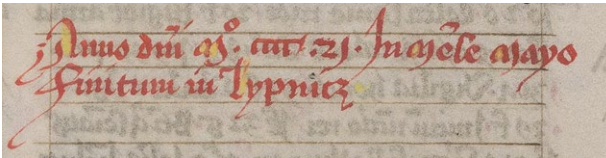 Anno dm̄i mͦ. cccc. 21. In mēse mayo
Finitum in lypnicz